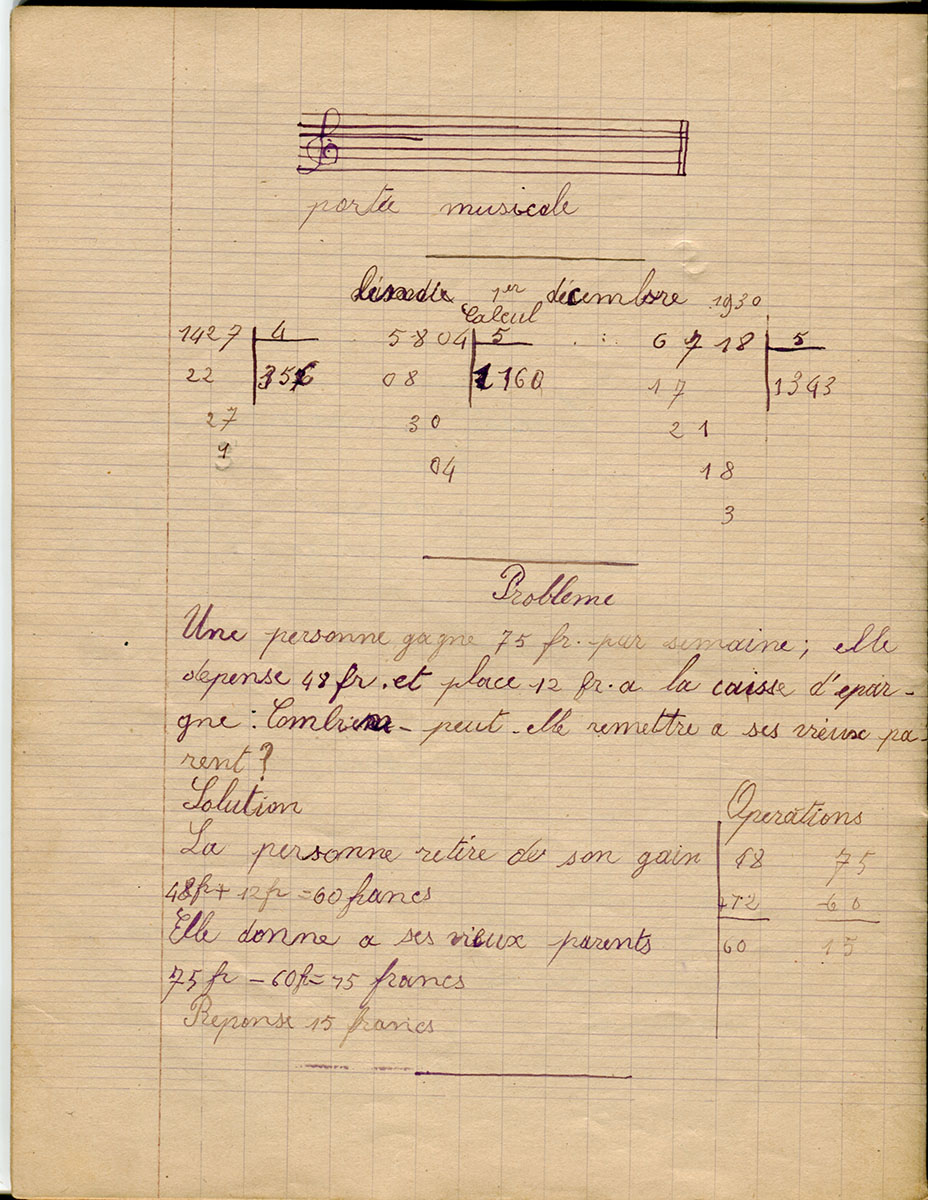 porteé musicale
1er décembre 1930
Calcul
1427 4 5804 5 6718 5
22 356 08 1160 17 1343
27 30 21
04 18
3
Probleme
Une personne gagne 75 fr. par semaine; elle
depense 48 fr. et place 12 fr. a la caisse d'epar-
gne: Combien peut-elle remettre a ses vieux pa-
rent?
Solution
Operations
La personne retire de son gain
48 75
48fr + 12fr = 60 francs
+12 -60
Elle donne a ses vieux parents
60 15
75 fr - 60fr = 15 francs
Reponse 15 francs